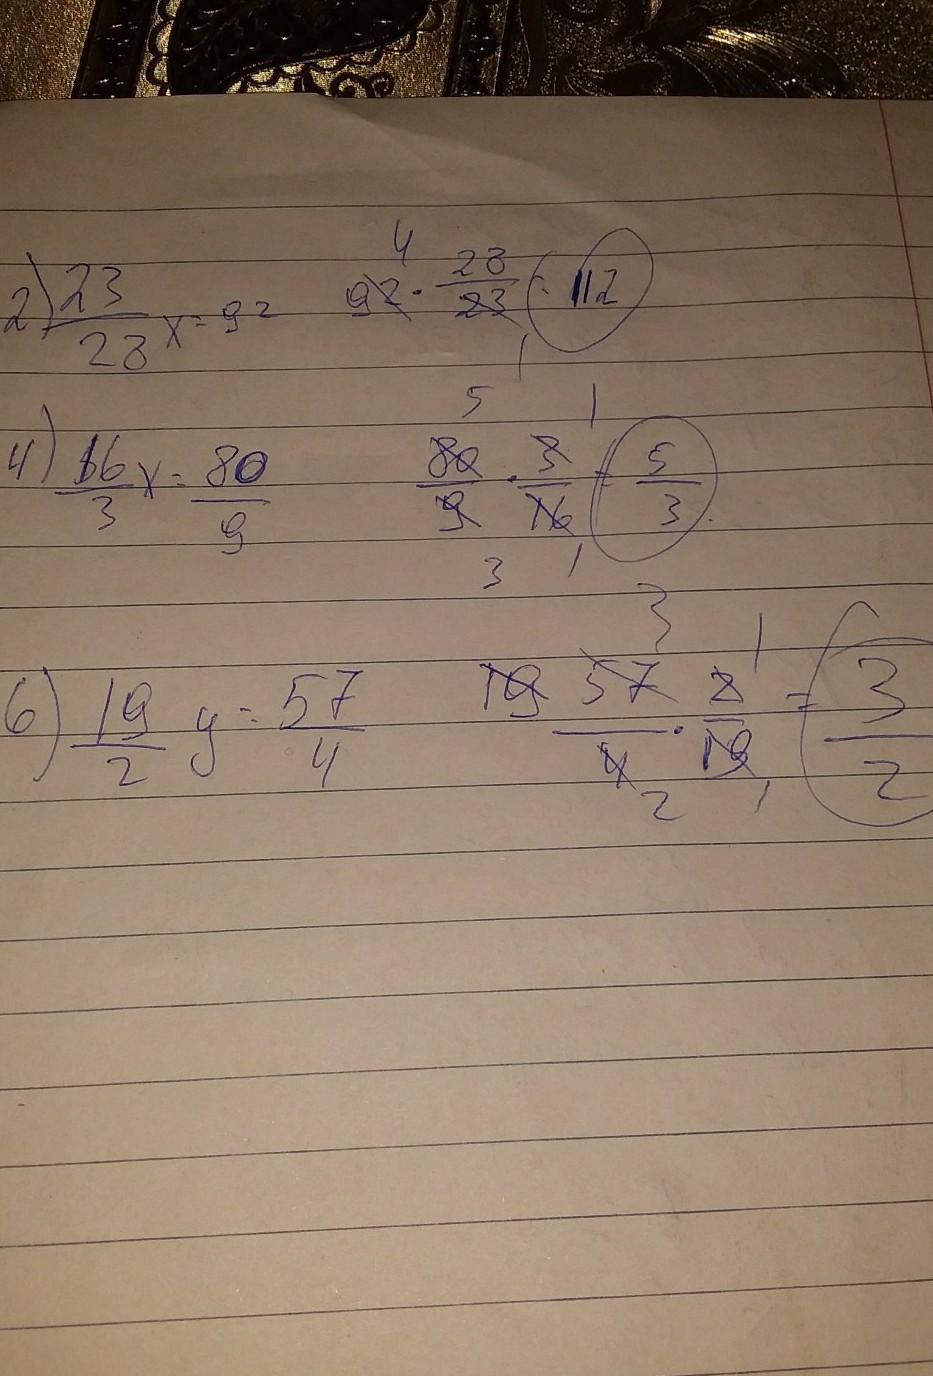 2) 23/28 x = 92   92 · 28/23 = 112
4) 16/3 x = 80/9   80/9 · 3/16 = 5/3
6) 19/2 y = 57/4   19 57/4 · 2/19 = 3/2